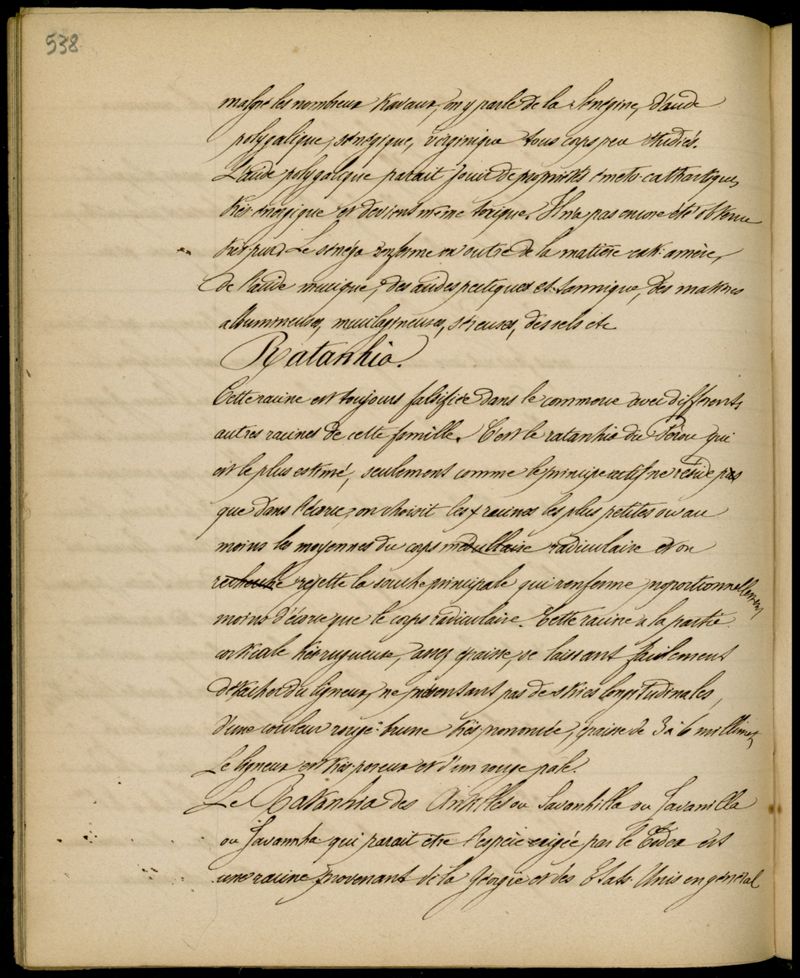 538
malgré les nombreux travaux, on y parle de la Sénégine, d'acide
polygalique, sénégique, virginique tous corps peu étudiés.
L'acide polygalique parait jouir de propriétés émeto-cathartiques
très énergique et devient même toxique. Il n'a pas encore été obtenu
très pur. Le sénéga renferme en outre de la matière extr. amère,
de l'acide mucique, des acides pectiques et tannique, des matières
albumineuses, mucilagineuses, cireuses, des sels etc
Ratanhia.
Cette racine est toujours falsifiée dans le commerce avec différents
autres racines de cette famille. C'est le ratanhia du Pérou qui
est le plus estimé, seulement comme le principe actif ne réside pas
que dans l'écorce, on choisit les racines les plus petites ou au
moins les moyennes du corps médullaire radiculaire et on
recherche rejette la souche principale qui renferme proportionnellement
moins d'écorce que le corps radiculaire. Cette racine a la partie
corticale très rugueuse, assez épaisse, se laissant facilement
détacher du ligneux, ne présentant pas de stries longitudinales,
d'une couleur rouge-brune très prononcée, épaisse de 3 à 6 millimet
Le ligneux est très poreux et d'un rouge pale.
Le Ratanhia des Antilles ou Savanhilla ou Savanilla
ou qui parait etre l'espèce exigée par le Codex est
une racine provenant de la Géorgie et des Etats-Unis en général